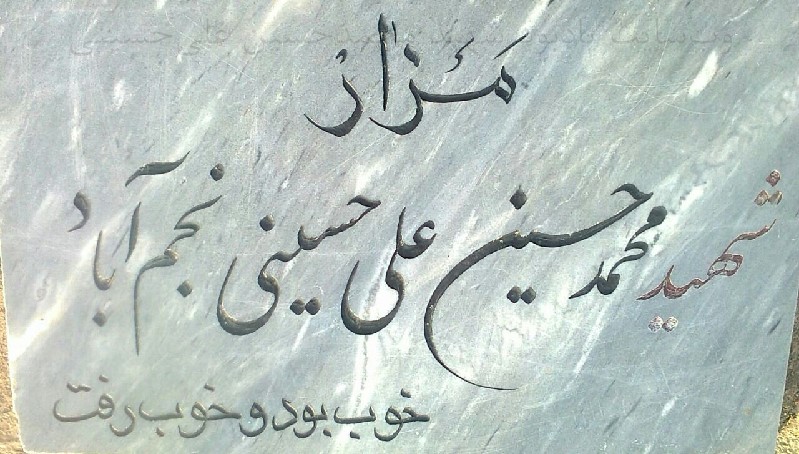 مزار
شهید محمد حسین علی حسینی نجم آباد
خوب بود و خوب رفت